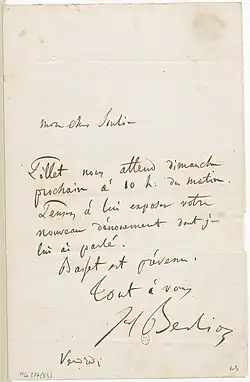 mon cher Soulié
Pillet nous attend dimanche
prochain à 10 h. du matin.
Pensez à lui exposer votre
nouveau dénouement dont je
lui ai parlé.
Bapst est prévenu.
Tout à vous
H Berlioz
Vendredi